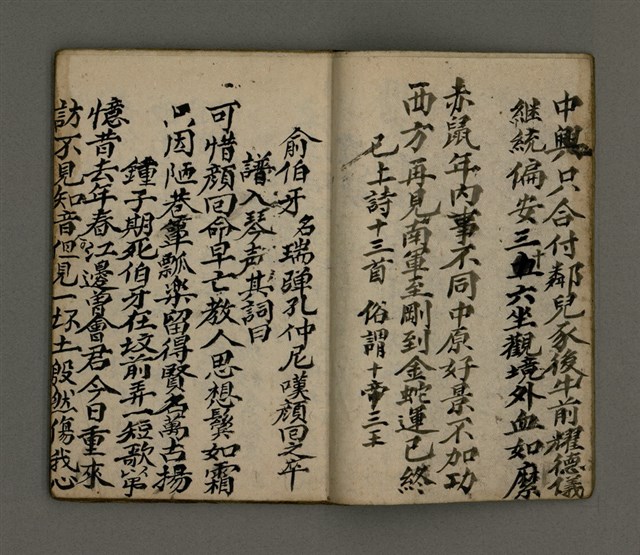 中興只合付鄰兒豕後牛前耀德儀
継統偏安三十六坐觀境外血如縻
赤鼠年內事不同中原好景不加功
西方再見南軍至剛到金蛇運已終
已上詩十三首 俗謂十帝三王
俞伯牙名瑞彈孔仲尼嘆顔回之卒
譜入琴声其詞曰
可惜顔回命早亡教人思想鬢如霜
只因陋巷簞瓢樂留得賢名萬古揚
鍾子期死伯牙在坟前弄一短歌以吊
憶昔去年春江邊曾會君今日重來
訪不見知音但見一坏土殷然傷我心